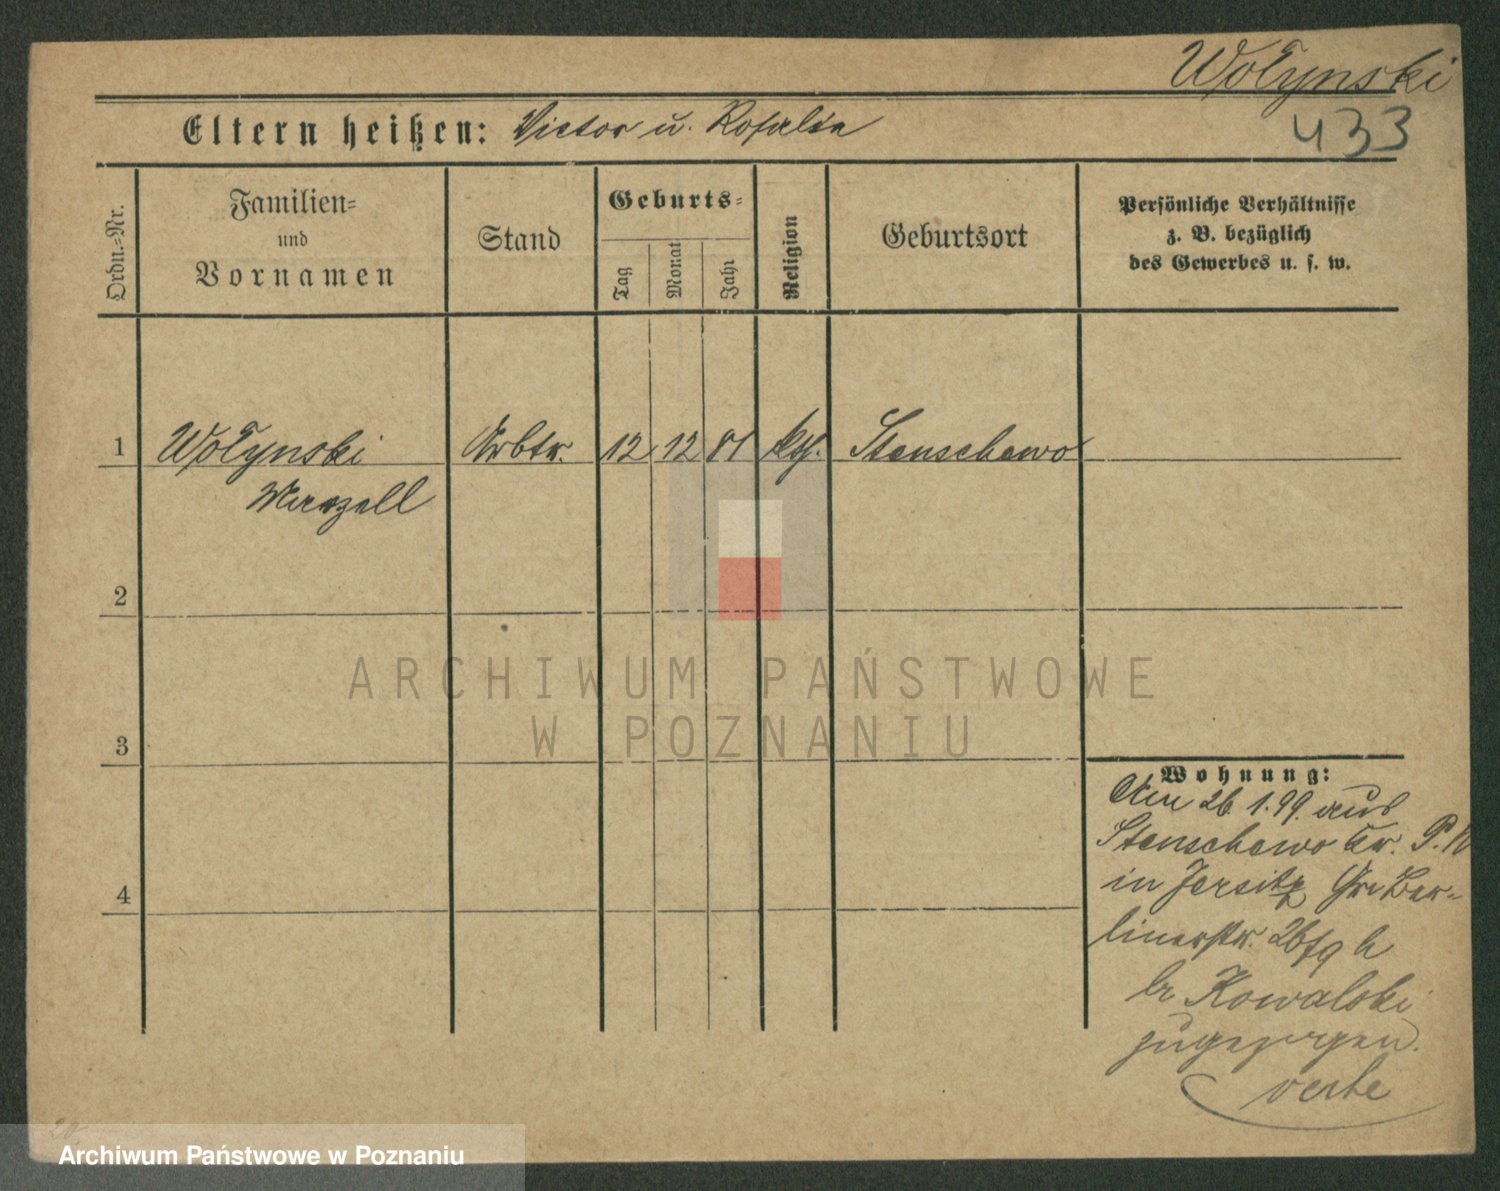 Wołynski
433
Eltern heißen: Victor u. Rosalie
Ordn.-Nr.
Familien-
und
Vornamen
Stand
Geburts-
Tag
Monat
Jahr
Religion
Geburtsort
Persönliche Verhältnisse
z. B. bezüglich
des Gewerbes u. s. w.
1 Wołynski Arbtr. 12 12 81 kth. Stenschewo
Marzell
2
3
4
Wohnung:
Am 26.1.99. aus
Stenschewo Kr. P. W
in Jersitz Gr. Ber-
linerstr.
br Kowalski
zugezogen.
ARCHIWUM PAŃSTWOWE
W POZNANIU
Archiwum Państwowe w Poznaniu